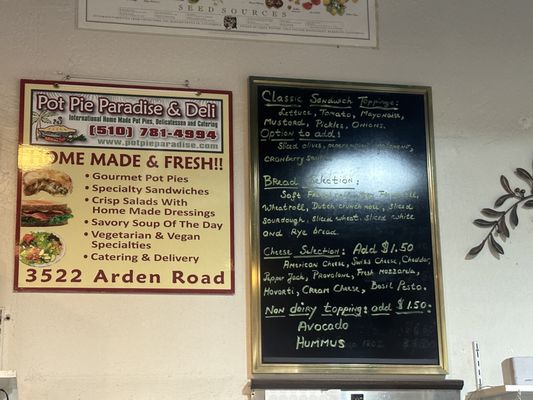 SEED SOURCES
Pot Pie Paradise & Deli
International Home Made Pot Pies, Delicatessen and Catering
(510) 781-4994
www.potpieparadise.com
HOME MADE & FRESH!!
• Gourmet Pot Pies
• Specialty Sandwiches
• Crisp Salads With
Home Made Dressings
• Savory Soup Of The
Day
• Vegetarian & Vegan
Specialties
• Catering & Delivery
3522 Arden Road
Classic Sandwich Toppings:
Lettuce, Tomato, Mayonaise,
Mustard, Pickles, Onions.
Option to add:
Sliced olives,
cranberry
Bread Selection:
Soft
Wheatroll, Dutch crunch roll, Sliced
Sourdough, Sliced wheat, Sliced white
and Rye bread.
Cheese Selection: Add $1.50
American Cheese, Swiss Cheese, Cheddar,
Pepper Jack, Provolone, Fresh mozzarella,
Havarti, Cream Cheese, Basil Pesto.
Non dairy topping: add $1.50.
Avocado
Hummus